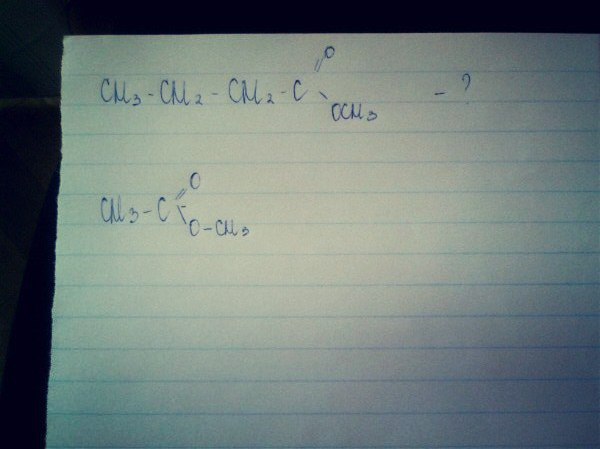 O
CH3-CH2-CH2-C
OCH3
- ?
O
CH3-C
O-CH3